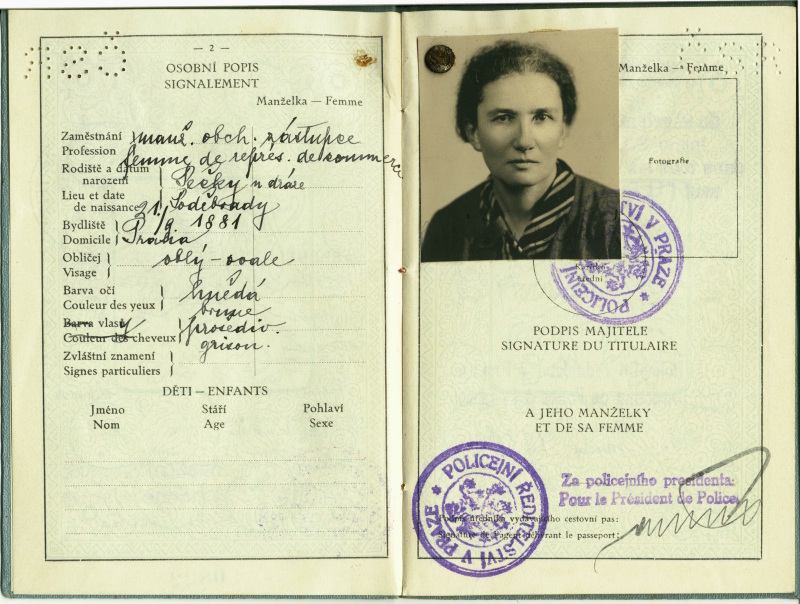 — 2 —
OSOBNÍ POPIS
SIGNALEMENT
Manželka — Femme
Zaměstnání
Profession
manž. obch. zástupce
femme de représ. de commerce
Rodiště a datum
narození
Lieu et date
de naissance
Pečky u dráze
Poděbrady
21./9. 1881
Bydliště
Domicile
Praha
Obličej
Visage
oblý - ovale
Barva očí
Couleur des yeux
hnědá
brune
Barva vlasy
Couleur des cheveux
prošediv.
grison.
Zvláštní znamení
Signes particuliers
DĚTI — ENFANTS
Jméno Stáří Pohlaví
Nom Age Sexe
Manželka - Femme
Fotografie
POLICEJNÍ ŘEDITELSTVÍ V PRAZE
PODPIS MAJITELE
SIGNATURE DU TITULAIRE
A JEHO MANŽELKY
ET DE SA FEMME
POLICEJNÍ ŘEDITELSTVÍ V PRAZE
Za policejního presidenta:
Pour le Président de Police
Podpis úředníka vydávajícího cestovní pas:
Signature de l'agent délivrant le passeport: